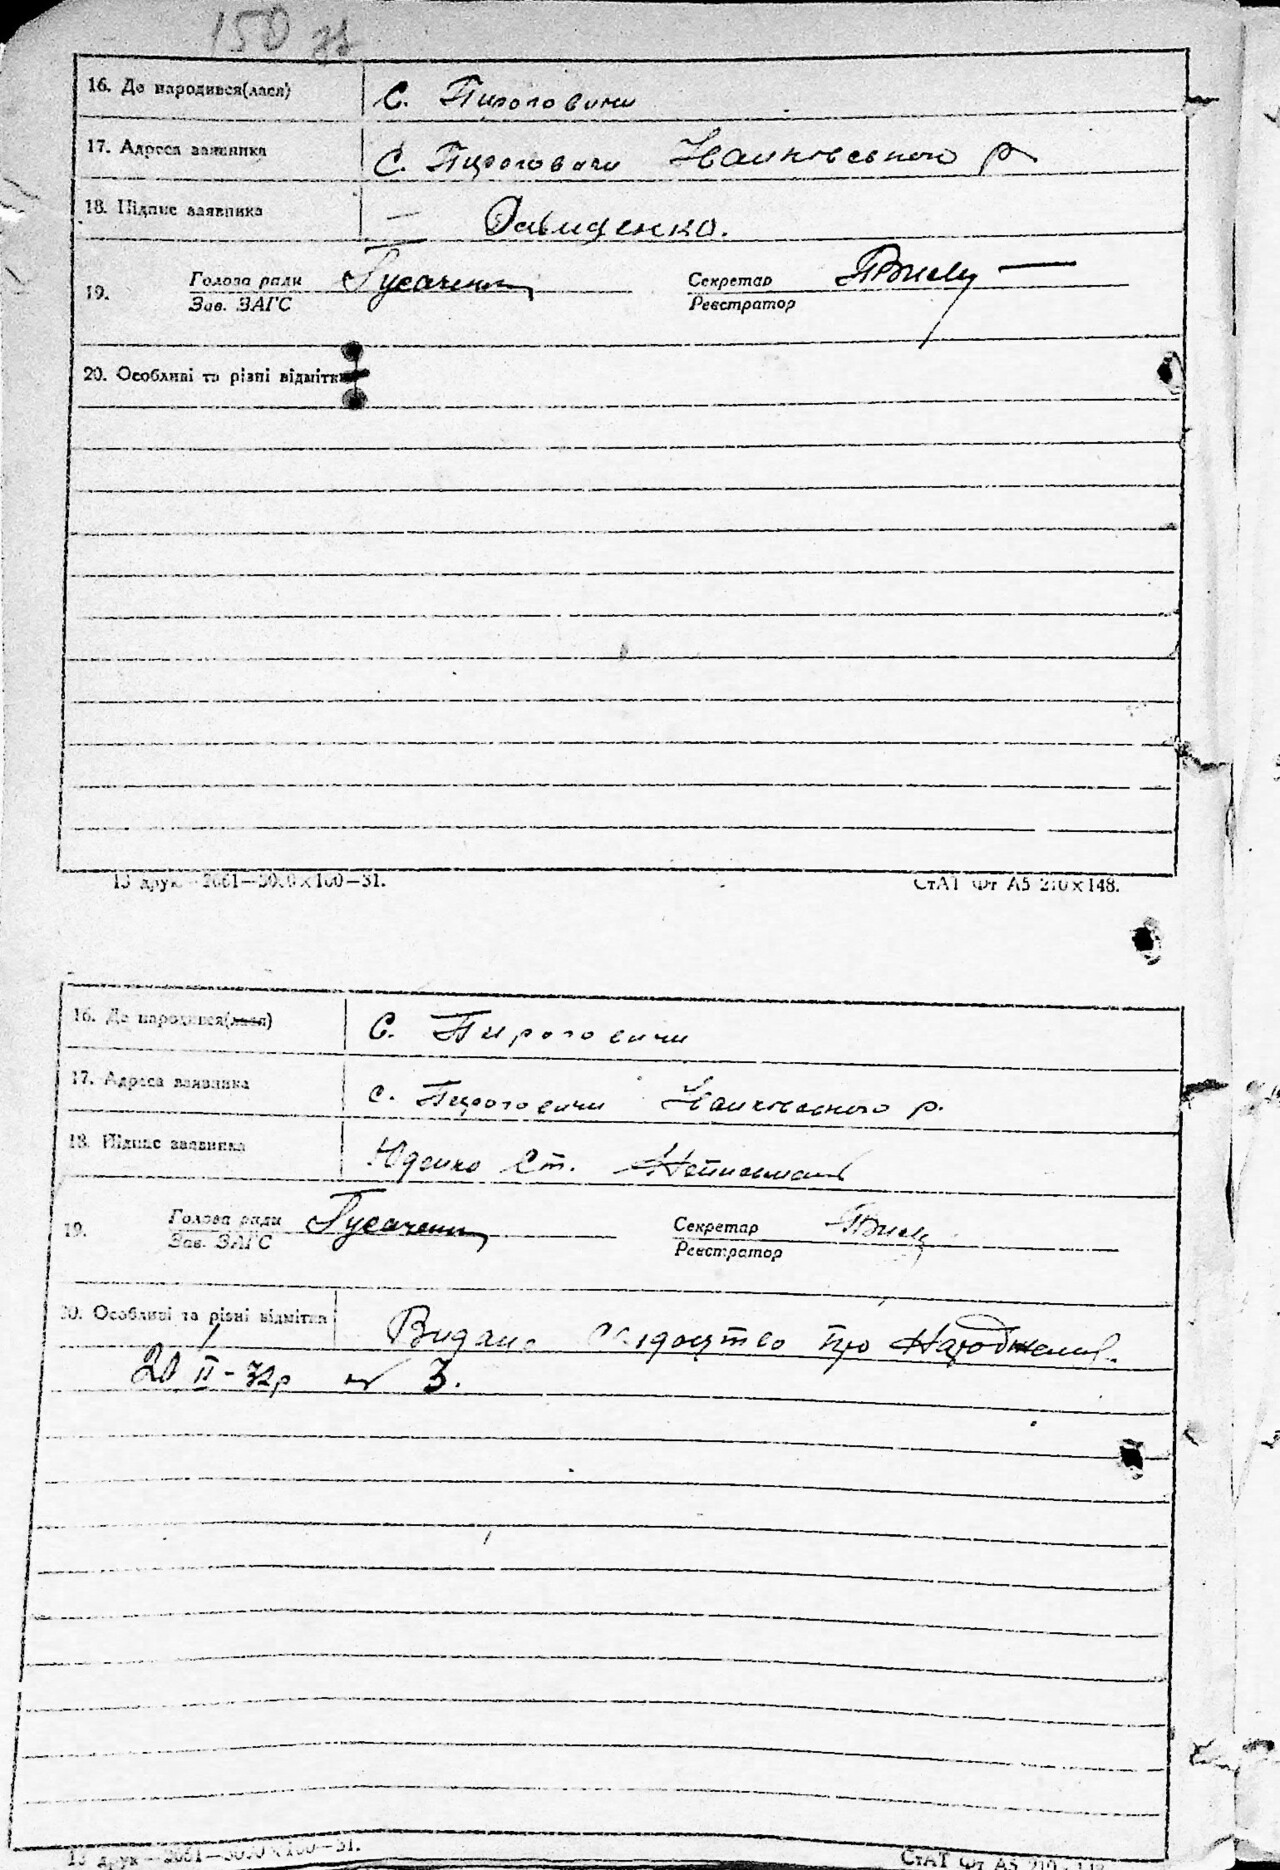 150 зв
16. Де народився(лася) С. Пироговичи
17. Адреса заявника С. Пироговичи Іванковського р
18. Підпис заявника — Давиденко.
19. Голова ради Гусаченко Секретар
Зав. ЗАГС Реєстратор
20. Особливі та різні відмітки
13 друк—2661—3000×100—31. СтАТ Фт А5 210×148.
16. Де народився(лася) С. Пироговичи
17. Адреса заявника с. Пироговичи Іванковського р.
18. Підпис заявника Юденко Ст.
19. Голова ради Гусаченко Секретар
Зав. ЗАГС Реєстратор
20. Особливі та різні відмітки Видано свідоцтво про Народження.
20/II-32р № 3.
13 друк—2661—3000×100—31. СтАТ Фт А5 210×148